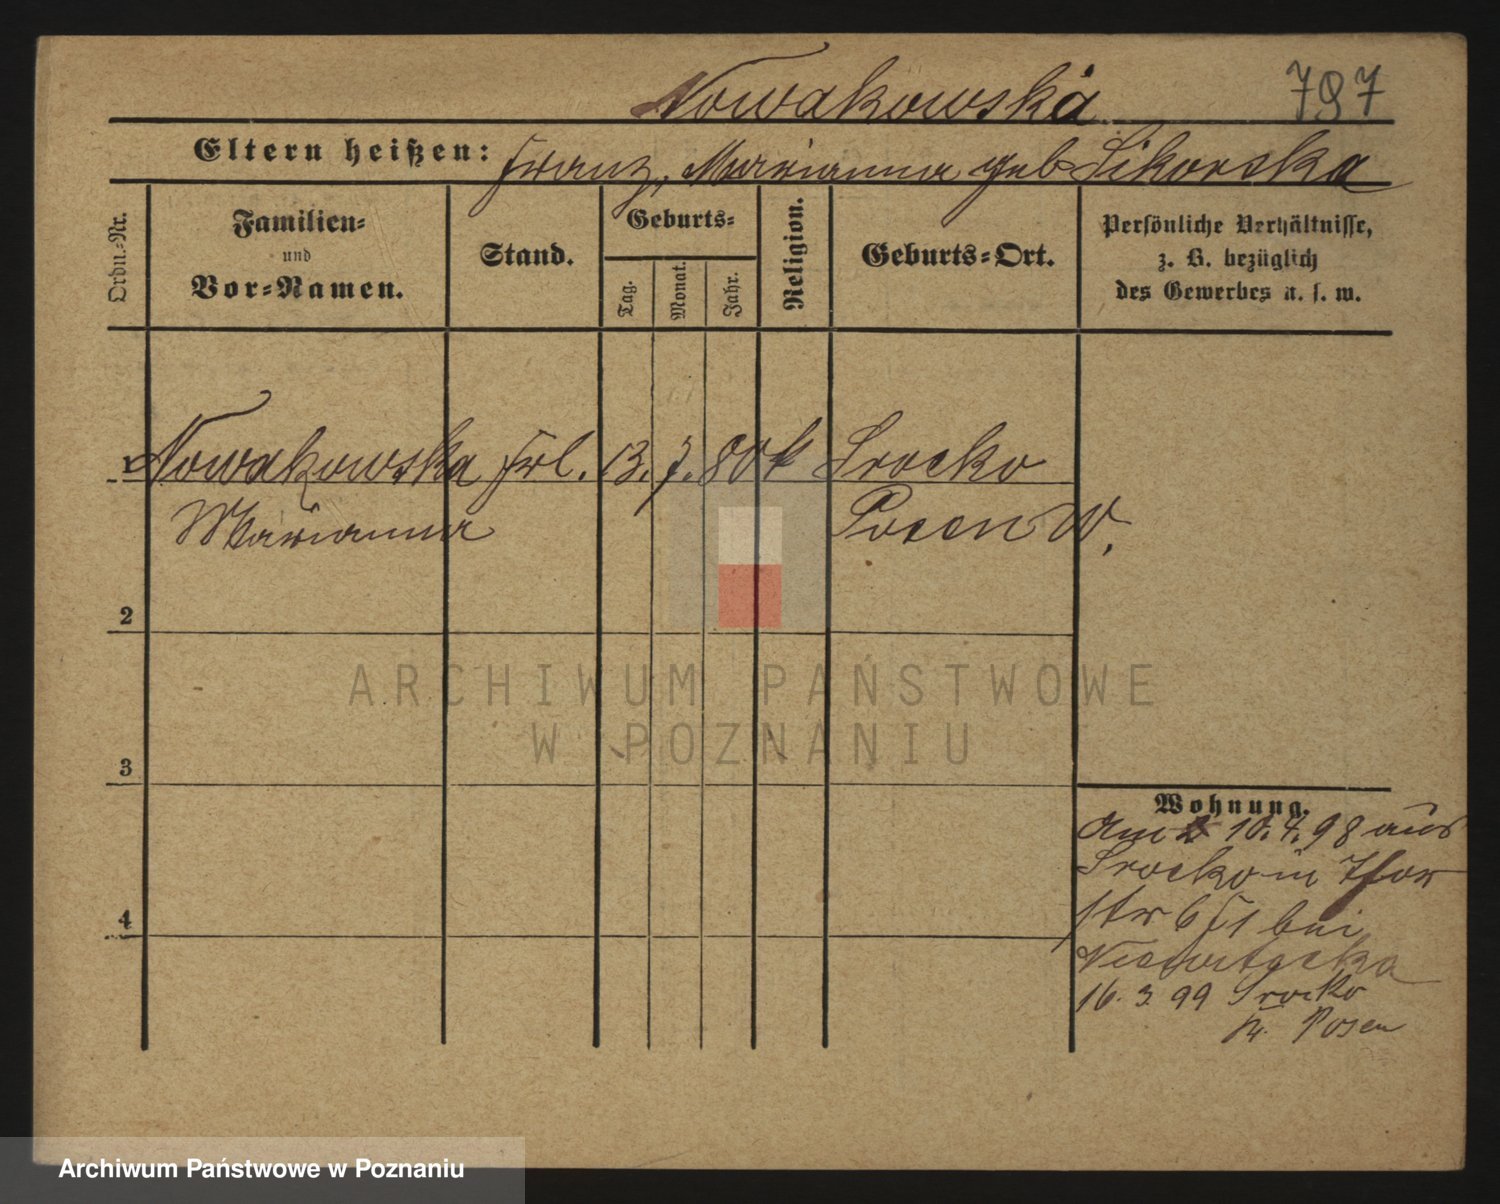 Nowakowska 787
Eltern heißen: Franz, Marianna geb Sikorska
Ordn.-Nr.
Familien-
und
Vor-Namen.
Stand.
Geburts-
Tag.
Monat.
Jahr.
Religion.
Geburts-Ort.
Persönliche Verhältnisse,
z. B. bezüglich
des Gewerbes u. s. w.
1 Nowakowska Frl. 13. 7. 80 k Srocko
Marianna Posen W.
2
3
4
Wohnung.
Am 10. 4. 98 aus
Srocko in
str 6 bei
16. 3 99 Srocko
Kr. Posen
ARCHIWUM PAŃSTWOWE
W POZNANIU
Archiwum Państwowe w Poznaniu